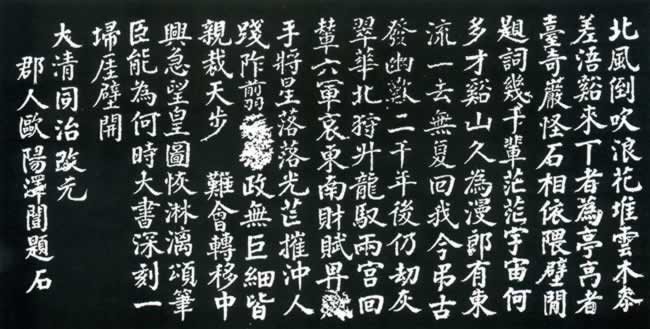 北風倒吹浪花堆雲木參
差浯谿來丁者為亭高者
臺奇巖怪石相依隈壁閒
題詞幾千輩茫茫宇宙何
多才谿山久為漫郎有東
流一去無复回我今弔古
發幽歎二千年後仍刧灰
翠華北狩升龍馭兩宮回
輦六軍哀東南財賦畀
手將星落落光芒摧沖人
踐阼翦政無巨細皆
親裁天步 難會轉移中
興急望皇圖恢淋漓頌筆
臣能為何時大書深刻一
埽厓壁開
大清同治改元
郡人歐陽澤闓題石